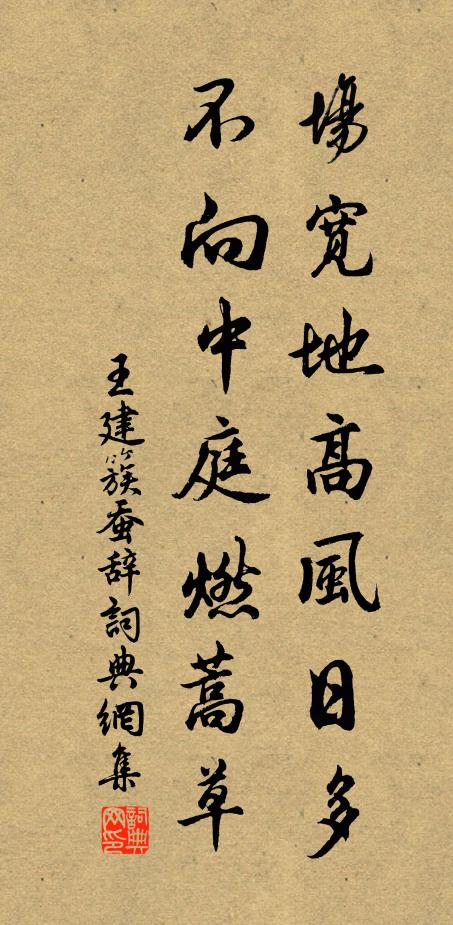 場寬地高風日多
不向中庭燃蒿草
王建簇蚕辞詞典網集
詞典网印